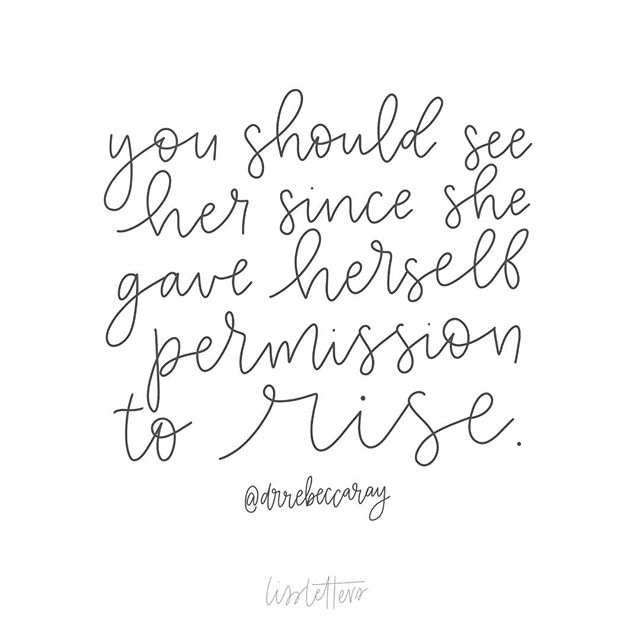 you should see
her since she
gave herself
permission
to rise.
@drrebeccaray
lissletters